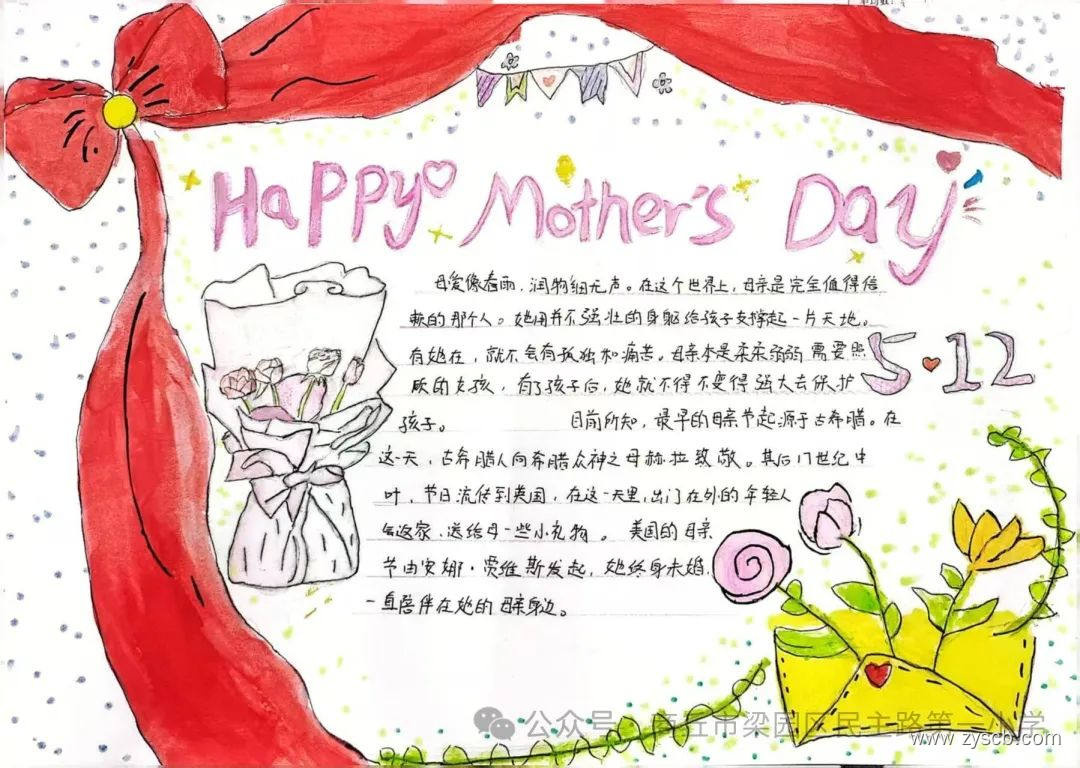 Happy Mother's Day
母爱像春雨，润物细无声。在这个世界上，母亲是完全值得信
赖的那个人。她用并不强壮的身躯给孩子支撑起一片天地。
有她在，就不会有孤独和痛苦。母亲本是柔柔弱弱需要照
顾的女孩，有了孩子后，她就不得不变得强大去保护
5·12
孩子。 目前所知，最早的母亲节起源于古希腊。在
这一天，古希腊人向希腊众神之母赫拉致敬。其后17世纪中
叶，节日流传到英国，在这一天里，出门在外的年轻人
会返家，送给母一些小礼物。 美国的母亲
节由安娜·贾维斯发起，她终身未婚，
一直陪伴在她的母亲身边。
公众号·商丘市梁园区民主路第一小学
www.zyscb.com